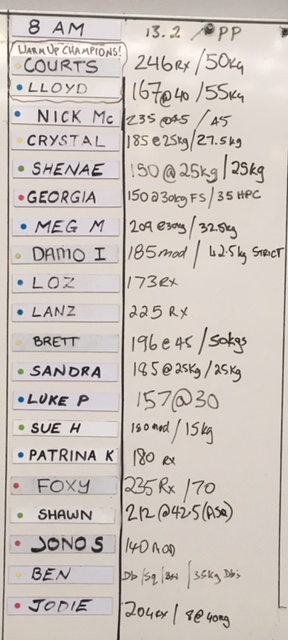 8 AM 13.2 / @PP
WARM UP CHAMPIONS!
COURTS 246 RX / 50Kg
LLOYD 167@40 / 55Kg
NICK Mc 235 @45 / 45
CRYSTAL 185 @ 25kg / 27.5kg
SHENAE 150 @ 25kg / 25kg
GEORGIA 150 @ 30kg FS / 35 HPC
MEG M 209 @30kg / 32.5kg
DAMO I 185 mod / 42.5kg STRICT
LOZ 173 RX
LANZ 225 RX
BRETT 196 @ 45 / 50kgs
SANDRA 185 @ 25kg / 25kg
LUKE P 157@30
SUE H 180 mod / 15kg
PATRINA K 180 RX
FOXY 235 Rx / 70
SHAWN 212 @ 42.5
JONO S 140 MOD
BEN Db / Sq / / 35kg Dbs
JODIE 204 / 8@40kg